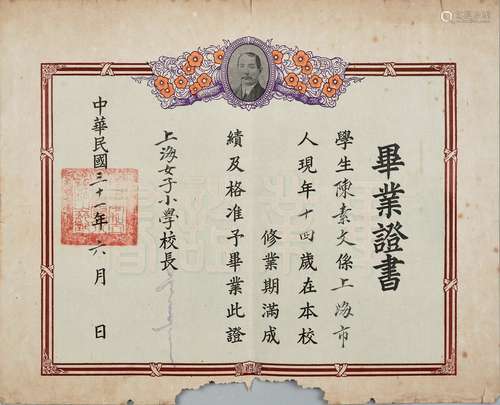 畢業證書
學生陳素文係上海市
人現年十四歲在本校
修業期滿成
績及格准予畢業此證
上海女子小學校長
中華民國三十一年六月 日